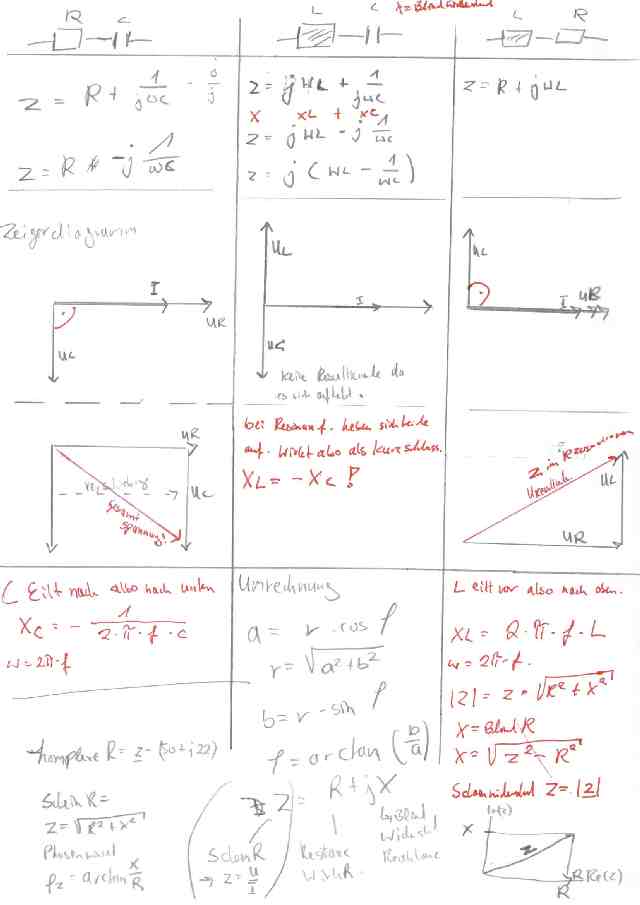 X = Blindwiderstand
R C
L C
L R
Z = R + 1/jωC · j/j
Z = R - j 1/ωC
Z = jωL + 1/jωC
X XL + XC
Z = jωL - j 1/ωC
Z = j (ωL - 1/ωC)
Z = R + jωL
Zeigerdiagramm
I
UR
UC
UL
I
UC
keine Resultierende da
es sich aufhebt.
UL
I UR
UR
UC
Gesamt
spannung!
bei Resonanzf. heben sich beide
auf. Wirkt also als Kurzschluss.
XL = - XC !
Z im
UL
UR
C Eilt nach also nach unten
XC = - 1/2·π·f·C
ω = 2π·f
Umrechnung
a = r · cos φ
r = √a²+b²
b = r · sin φ
φ = arctan (b/a)
L eilt vor also nach oben.
XL = 2·π·f·L
ω = 2π·f.
|Z| = Z = √R²+X²
X = Blind R
X = √Z² - R²
Scheinwiderstand Z = |Z|
komplexe R = Z = (50 + j22)
Schein R =
Z = √R²+X²
Phasenwinkel
φz = arctan X/R
Z = R + jX
Schein R
→ Z = U/I
Im(z)
X
Z
R Re(z)
R